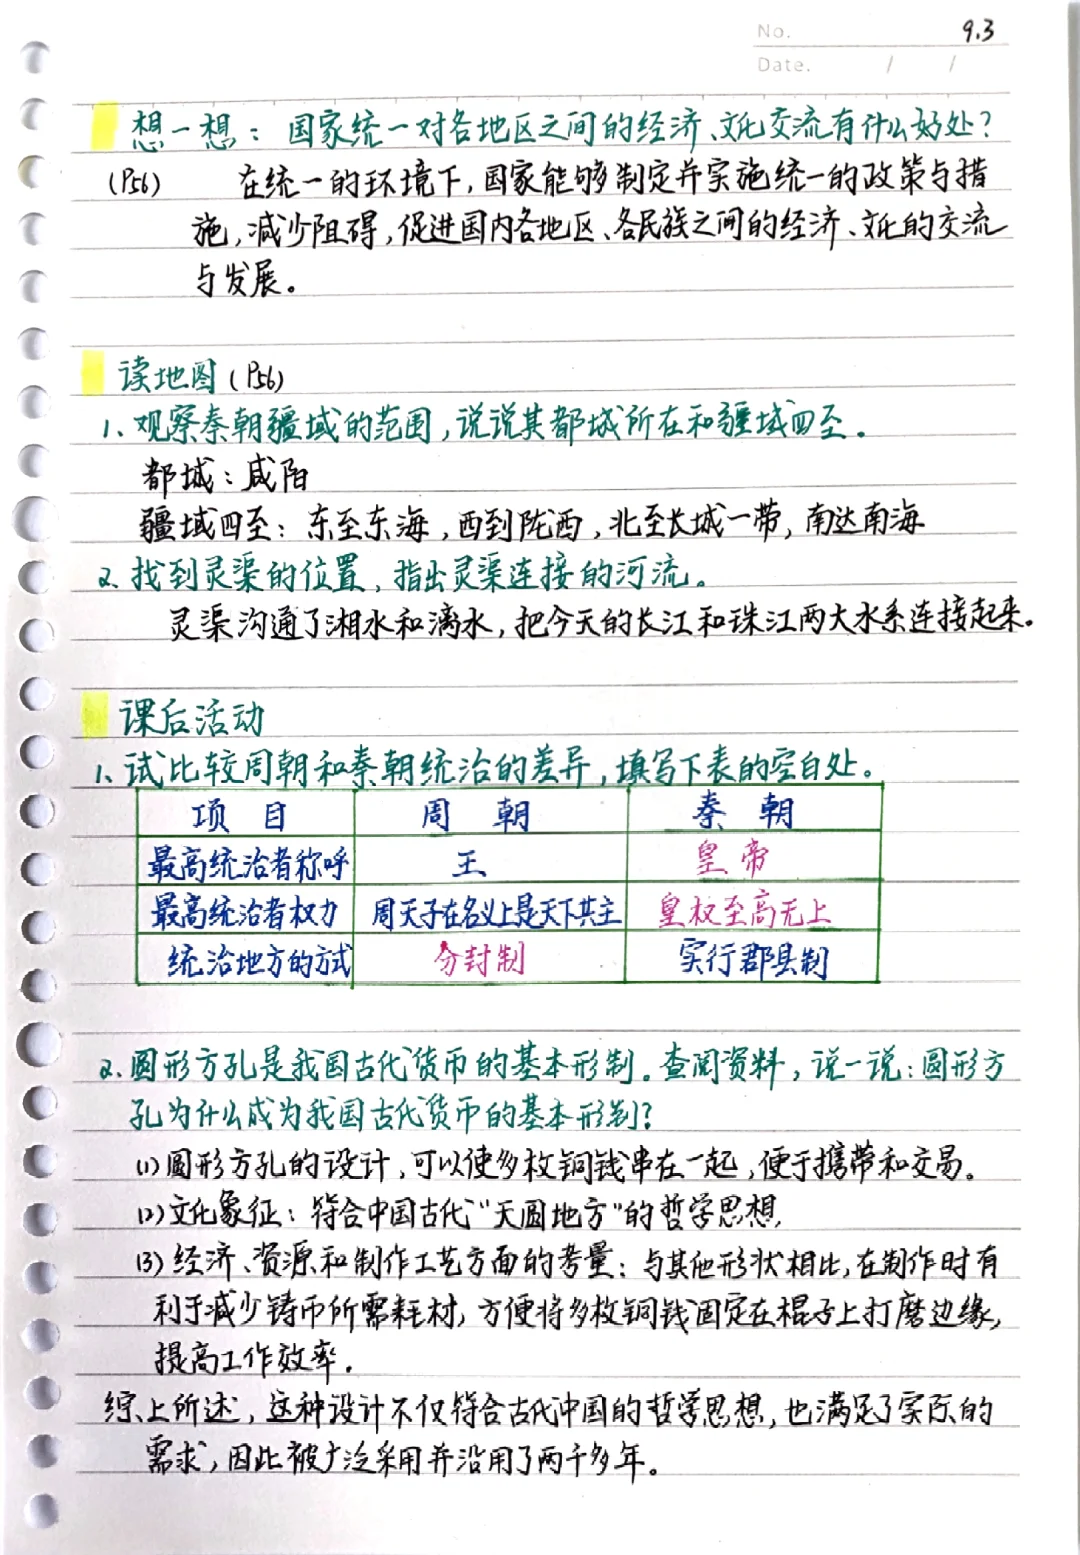 No. 9.3
Date. / /
想一想：国家统一对各地区之间的经济、文化交流有什么好处？
(P56) 在统一的环境下，国家能够制定并实施统一的政策与措
施，减少阻碍，促进国内各地区、各民族之间的经济、文化的交流
与发展。
读地图(P56)
1、观察秦朝疆域的范围，说说其都城所在和疆域四至。
都城：咸阳
疆域四至：东至东海，西到陇西，北至长城一带，南达南海
2、找到灵渠的位置，指出灵渠连接的河流。
灵渠沟通了湘水和漓水，把今天的长江和珠江两大水系连接起来。
课后活动
1、试比较周朝和秦朝统治的差异，填写下表的空白处。
项目 周朝 秦朝
最高统治者称呼 王 皇帝
最高统治者权力 周天子在名义上是天下共主 皇权至高无上
统治地方的方式 分封制 实行郡县制
2、圆形方孔是我国古代货币的基本形制。查阅资料，说一说：圆形方
孔为什么成为我国古代货币的基本形制？
(1)圆形方孔的设计，可以使多枚铜钱串在一起，便于携带和交易。
(2)文化象征：符合中国古代“天圆地方”的哲学思想。
(3)经济、资源和制作工艺方面的考量：与其他形状相比，在制作时有
利于减少铸币所需耗材，方便将多枚铜钱固定在棍子上打磨边缘，
提高工作效率。
综上所述，这种设计不仅符合古代中国的哲学思想，也满足了实际的
需求，因此被广泛采用并沿用了两千多年。